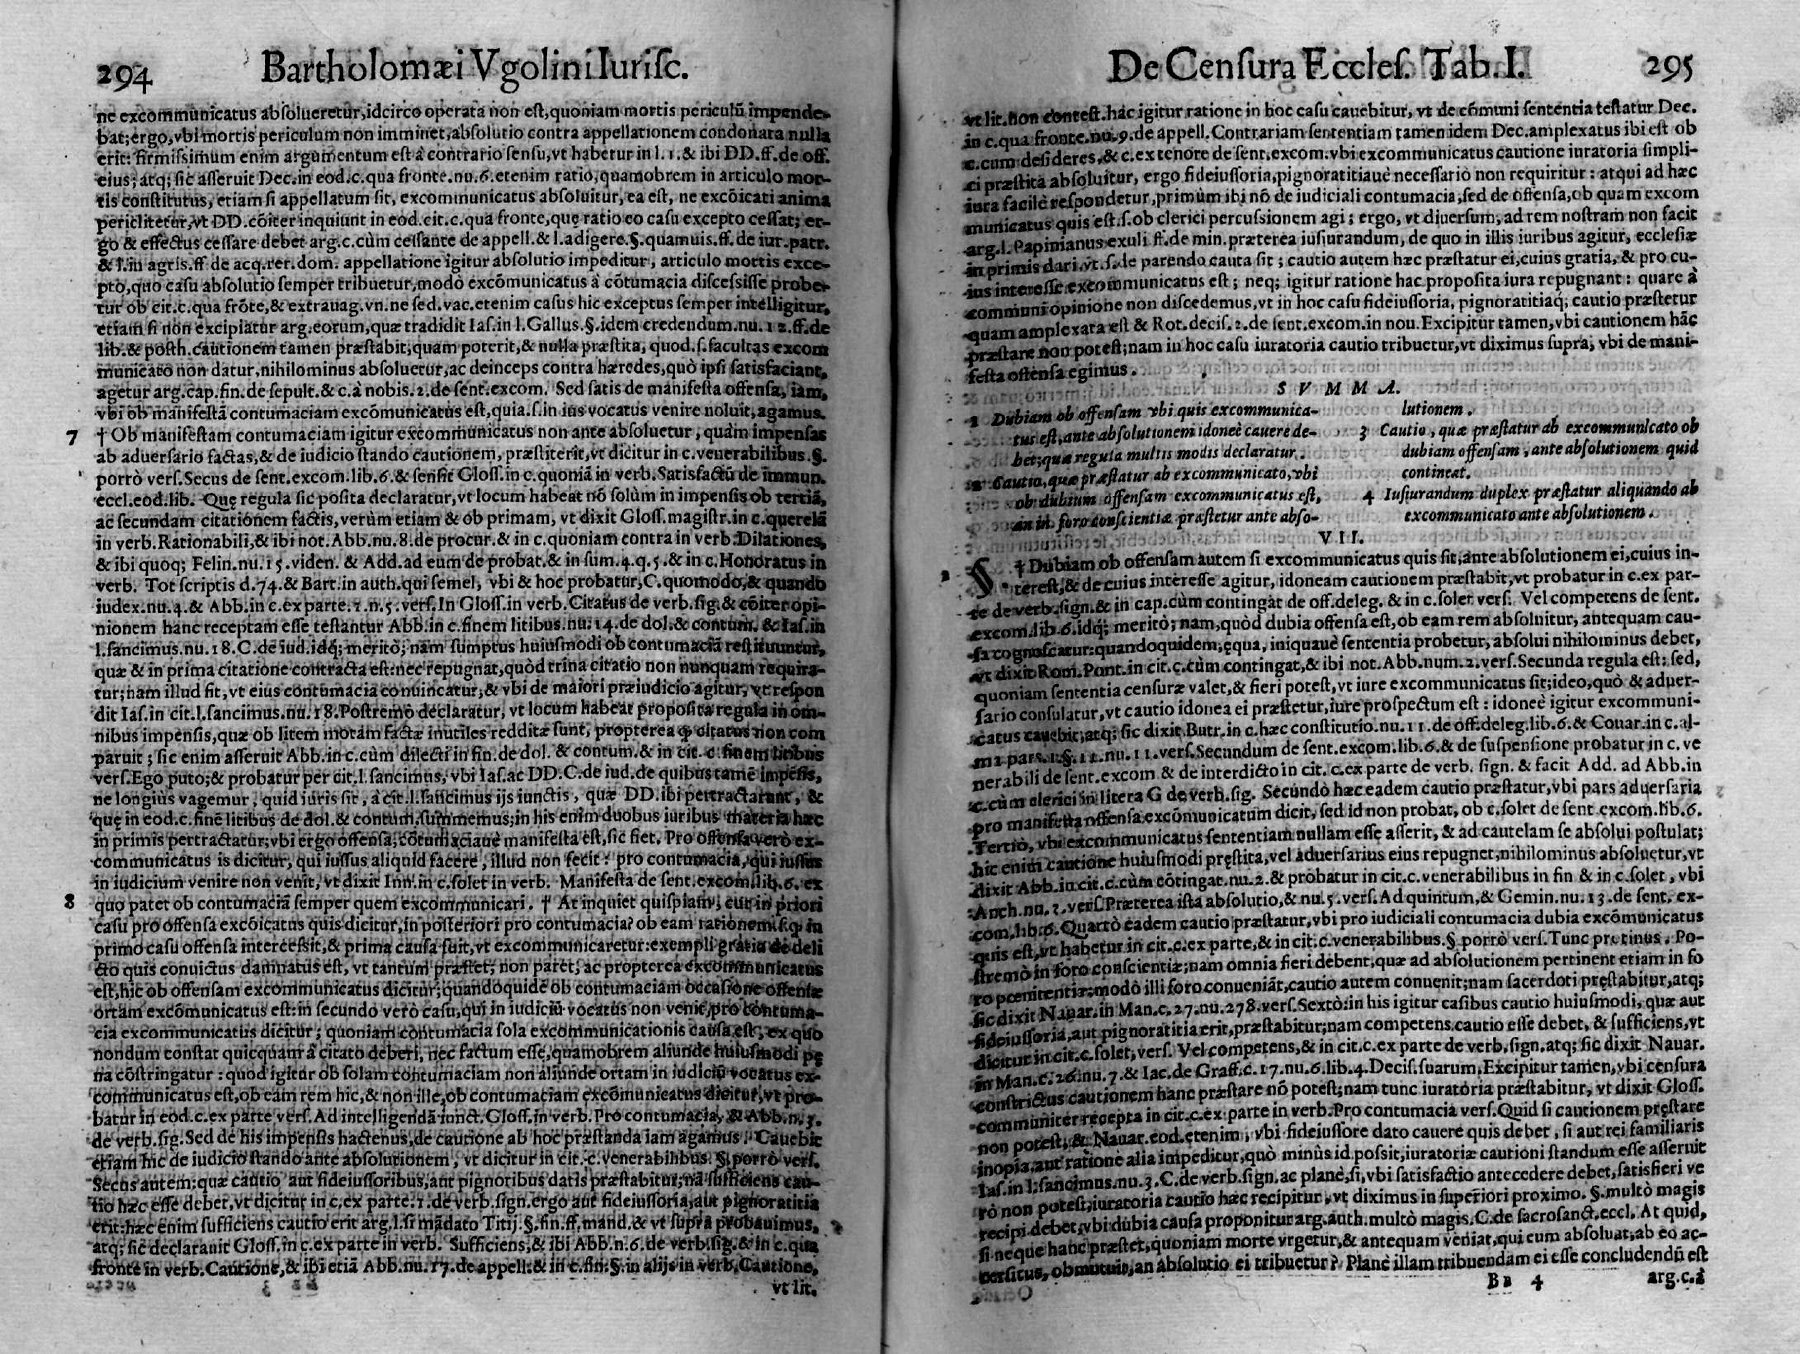 294 Bartholomæi Vgolini Iurisc.
ne excommunicatus absolueretur, idcirco operata non est, quoniam mortis periculũ impende-
bat; ergo, vbi mortis periculum non imminet, absolutio contra appellationem condonata nulla
erit: firmissimum enim argumentum est à contrario sensu, vt habetur in l. 1. & ibi DD. ff. de off.
eius; atq; sic asseruit Dec. in eod. c. qua fronte. nu. 6. etenim ratio, quamobrem in articulo mor-
tis constitutus, etiam si appellatum sit, excommunicatus absoluitur, ea est, ne excõicati anima
periclitetur, vt DD. cõiter inquiunt in eod. cit. c. qua fronte, quę ratio eo casu excepto cessat; er-
go & effectus cessare debet arg. c. cùm cessante de appell. & l. adigere. §. quamuis. ff. de iur. patr.
& l. in agris. ff de acq. rer. dom. appellatione igitur absolutio impeditur, articulo mortis exce-
pto, quo casu absolutio semper tribuetur, modò excõmunicatus à cõtumacia discessisse probe-
tur ob cit. c. qua frõte, & extrauag. vn. ne sed. vac. etenim casus hic exceptus semper intelligitur,
etiam si non excipiatur arg. eorum, quæ tradidit Ias. in l. Gallus. §. idem credendum. nu. 12. ff. de
lib. & posth. cautionem tamen præstabit, quam poterit, & nulla præstita, quod. s. facultas excom
municato non datur, nihilominus absoluetur, ac deinceps contra hæredes, quò ipsi satisfaciant,
agetur arg. cap. fin. de sepult. & c. à nobis. 2. de sent. excom. Sed satis de manifesta offensa, iam,
vbi ob manifestã contumaciam excõmunicatus est, quia. s. in ius vocatus venire noluit, agamus.
7 † Ob manifestam contumaciam igitur excommunicatus non ante absoluetur, quàm impensas
ab aduersario factas, & de iudicio stando cautionem, præstiterit, vt dicitur in c. venerabilibus. §.
porrò vers. Secus de sent. excom. lib. 6. & sensit Gloss. in c. quoniã in verb. Satisfactũ de immun.
eccl. eod. lib. Quę regula sic posita declaratur, vt locum habeat nõ solùm in impensis ob tertiã,
ac secundam citationem factis, verùm etiam & ob primam, vt dixit Gloss. magistr. in c. querelã
in verb. Rationabili, & ibi not. Abb. nu. 8. de procur. & in c. quoniam contra in verb. Dilationes,
& ibi quoq; Felin. nu. 15. viden. & Add. ad eum de probat. & in sum. 4. q. 5. & in c. Honoratus in
verb. Tot scriptis d. 74. & Bart. in auth. qui semel, vbi & hoc probatur, C. quomodo, & quando
iudex. nu. 4. & Abb. in c. ex parte. 1. n. 5. vers. In Gloss. in verb. Citatus de verb. sig. & cõiter opi-
nionem hanc receptam esse testantur Abb. in c. finem litibus. nu. 14. de dol. & contum. & Ias. in
l. sancimus. nu. 18. C. de iud. idq; meritò; nam sumptus huiusmodi ob contumaciã restituuntur,
quæ & in prima citatione contracta est: nec repugnat, quòd trina citatio non nunquam requira-
tur; nam illud fit, vt eius contumacia conuincatur, & vbi de maiori præiudicio agitur, vt respon
dit Ias. in cit. l. sancimus. nu. 18. Postremò declaratur, vt locum habeat proposita regula in om-
nibus impensis, quæ ob litem motam factæ inutiles redditæ sunt, propterea ꝙ citatus non com
paruit; sic enim asseruit Abb. in c. cùm dilecti in fin. de dol. & contum. & in cit. c. finem litibus
vers. Ego puto; & probatur per cit. l. sancimus, vbi Ias. ac DD. C. de iud. de quibus tamẽ impẽsis,
ne longiùs vagemur, quid iuris sit, à cit. l. sancimus ijs iunctis, quæ DD. ibi pertractarunt, &
quę in eod. c. finẽ litibus de dol. & contum. summemus; in his enim duobus iuribus materia hæc
in primis pertractatur; vbi ergo offensa, cõtumaciaue manifesta est, sic fiet. Pro offensa verò ex-
communicatus is dicitur, qui iussus aliquid facere, illud non fecit: pro contumacia, qui iussus
in iudicium venire non venit, vt dixit Inn. in c. solet in verb. Manifesta de sent. excom. lib. 6. ex
8 quo patet ob contumaciã semper quem excommunicari. † At inquiet quispiam, cur in priori
casu pro offensa excõicatus quis dicitur, in posteriori pro contumacia? ob eam rationem, s. ꝙ in
primo casu offensa intercessit, & prima causa fuit, vt excommunicaretur: exempli gratia de deli
cto quis conuictus damnatus est, vt tantum præstet; non paret; ac propterea excommunicatus
est, hic ob offensam excommunicatus dicitur; quandoquidẽ ob contumaciam occasione offensæ
ortam excõmunicatus est: in secundo verò casu, qui in iudiciũ vocatus non venit, pro contuma-
cia excommunicatus dicitur; quoniam contumacia sola excommunicationis causa est, ex quo
nondum constat quicquam à citato deberi, nec factum esse, quamobrem aliunde huiusmodi pę
na cõstringatur: quod igitur ob solam contumaciam non aliunde ortam in iudiciũ vocatus ex-
communicatus est, ob eam rem hic, & non ille, ob contumaciam excõmunicatus dicitur, vt pro-
batur in eod. c. ex parte vers. Ad intelligendã iunct. Gloss. in verb. Pro contumacia, & Abb. n. 3.
de verb. sig. Sed de his impensis hactenus, de cautione ab hoc præstanda iam agamus. Cauebit
etiam hic de iudicio stando ante absolutionem, vt dicitur in cit. c. venerabilibus. §. porrò vers.
Secus autem: quæ cautio aut fideiussoribus, aut pignoribus datis præstabitur; nã sufficiens cau-
tio hæc esse debet, vt dicitur in c. ex parte. 1. de verb. sign. ergo aut fideiussoria, aut pignoratitia
erit: hæc enim sufficiens cautio erit arg. l. si mãdato Titij. §. fin. ff. mand. & vt supra probauimus,
atq; sic declarauit Gloss. in c. ex parte in verb. Sufficiens, & ibi Abb. n. 6. de verb. sig. & in c. qua
fronte in verb. Cautione, & ibi etiã Abb. nu. 17. de appell. & in c. fin. §. in alijs in verb. Cautione,
vt lit.
De Censura Eccles. Tab. I. 295
vt lit. non contest. hac igitur ratione in hoc casu cauebitur, vt de cõmuni sententia testatur Dec.
in c. qua fronte. nu. 9. de appell. Contrariam sententiam tamen idem Dec. amplexatus ibi est ob
c. cum desideres, & c. ex tenore de sent. excom. vbi excommunicatus cautione iuratoria simpli-
ci præstita absoluitur, ergo fideiussoria, pignoratitiauè necessariò non requiritur: atqui ad hæc
iura facilè respondetur, primùm ibi nõ de iudiciali contumacia, sed de offensa, ob quam excom
municatus quis est. s. ob clerici percussionem agi; ergo, vt diuersum, ad rem nostram non facit
arg. l. Papinianus exuli ff. de min. præterea iusiurandum, de quo in illis iuribus agitur, ecclesiæ
in primis dari. vt. s. de parendo cauta sit; cautio autem hæc præstatur ei, cuius gratia, & pro cu-
ius interesse excommunicatus est; neq; igitur ratione hac proposita iura repugnant: quare à
communi opinione non discedemus, vt in hoc casu fideiussoria, pignoratitiaq; cautio præstetur
quam amplexata est & Rot. decis. 2. de sent. excom. in nou. Excipitur tamen, vbi cautionem hãc
præstare non potest; nam in hoc casu iuratoria cautio tribuetur, vt diximus supra, vbi de mani-
festa offensa egimus.
SVMMA.
1 Dubiam ob offensam vbi quis excommunica-
tus est, ante absolutionem idoneè cauere de-
bet; quæ regula multis modis declaratur.
2 Cautio, quæ præstatur ab excommunicato, vbi
ob dubium offensam excommunicatus est,
an in foro conscientiæ præstetur ante abso-
lutionem.
3 Cautio, quæ præstatur ab excommunicato ob
dubiam offensam, ante absolutionem quid
contineat.
4 Iusiurandum duplex præstatur aliquando ab
excommunicato ante absolutionem.
VII.
1 §. † Dubiam ob offensam autem si excommunicatus quis sit, ante absolutionem ei, cuius in-
terest, & de cuius interesse agitur, idoneam cautionem præstabit, vt probatur in c. ex par-
te de verb. sign. & in cap. cùm contingat de off. deleg. & in c. solet vers. Vel competens de sent.
excom. lib. 6. idq; meritò; nam, quòd dubia offensa est, ob eam rem absoluitur, antequam cau-
sa cognoscatur: quandoquidem, ęqua, iniquauè sententia probetur, absolui nihilominus debet,
vt dixit Rom. Pont. in cit. c. cùm contingat, & ibi not. Abb. num. 2. vers. Secunda regula est: sed,
quoniam sententia censuræ valet, & fieri potest, vt iure excommunicatus sit; ideo, quò & aduer-
sario consulatur, vt cautio idonea ei præstetur, iure prospectum est: idoneè igitur excommuni-
catus cauebit; atq; sic dixit Butr. in c. hæc constitutio. nu. 11. de off. deleg. lib. 6. & Couar. in c. al-
ma pars. 1. §. 11. nu. 11. vers. Secundum de sent. excom. lib. 6. & de suspensione probatur in c. ve
nerabili de sent. excom & de interdicto in cit. c. ex parte de verb. sign. & facit Add. ad Abb. in
c. cùm clerici in litera G de verb. sig. Secundò hæc eadem cautio præstatur, vbi pars aduersaria
pro manifesta offensa excõmunicatum dicit, sed id non probat, ob c. solet de sent excom. lib. 6.
Tertiò, vbi excommunicatus sententiam nullam esse asserit, & ad cautelam se absolui postulat;
hic enim cautione huiusmodi pręstita, vel aduersarius eius repugnet, nihilominus absoluetur, vt
dixit Abb. in cit. c. cùm cõtingat. nu. 2. & probatur in cit. c. venerabilibus in fin & in c. solet, vbi
Anch. nu. 2. vers. Præterea ista absolutio, & nu. 5. vers. Ad quintum, & Gemin. nu. 13. de sent. ex-
com. lib. 6. Quartò eadem cautio præstatur, vbi pro iudiciali contumacia dubia excõmunicatus
quis est, vt habetur in cit. c. ex parte, & in cit. c. venerabilibus. §. porrò vers. Tunc protinus. Po-
stremò in foro conscientiæ; nam omnia fieri debent, quæ ad absolutionem pertinent etiam in fo
ro pœnitentiæ; modò illi foro conueniãt, cautio autem conuenit; nam sacerdoti pręstabitur, atq;
sic dixit Nauar. in Man. c. 27. nu. 278. vers. Sextò: in his igitur casibus cautio huiusmodi, quæ aut
fideiussoria, aut pignoratitia erit, præstabitur; nam competens cautio esse debet, & sufficiens, vt
dicitur in cit. c. solet, vers. Vel competens, & in cit. c. ex parte de verb. sign. atq; sic dixit Nauar.
in Man. c. 26. nu. 7. & Iac. de Graff. c. 17. nu. 6. lib. 4. Decis. suarum. Excipitur tamen, vbi censura
constrictus cautionem hanc præstare nõ potest; nam tunc iuratoria præstabitur, vt dixit Gloss.
communiter recepta in cit. c. ex parte in verb. Pro contumacia vers. Quid si cautionem pręstare
non potest, & Nauar. eod. etenim, vbi fideiussore dato cauere quis debet, si aut rei familiaris
inopia, aut ratione alia impeditur, quò minùs id possit, iuratoriæ cautioni standum esse asseruit
Ias. in l. sancimus. nu. 3. C. de verb. sign. ac planè, si, vbi satisfactio antecedere debet, satisfieri ve
rò non potest, iuratoria cautio hæc recipitur, vt diximus in superiori proximo. §. multò magis
recipi debet, vbi dubia causa proponitur arg. auth. multò magis. C. de sacrosanct. eccl. At quid,
si neque hanc præstet, quoniam morte vrgetur, & antequam veniat, qui eum absoluat, ab eo ac-
cersitus, obmutuit, an absolutio ei tribuetur? Planè illam tribuendam ei esse concludendũ est
Bb 4 arg. c. à